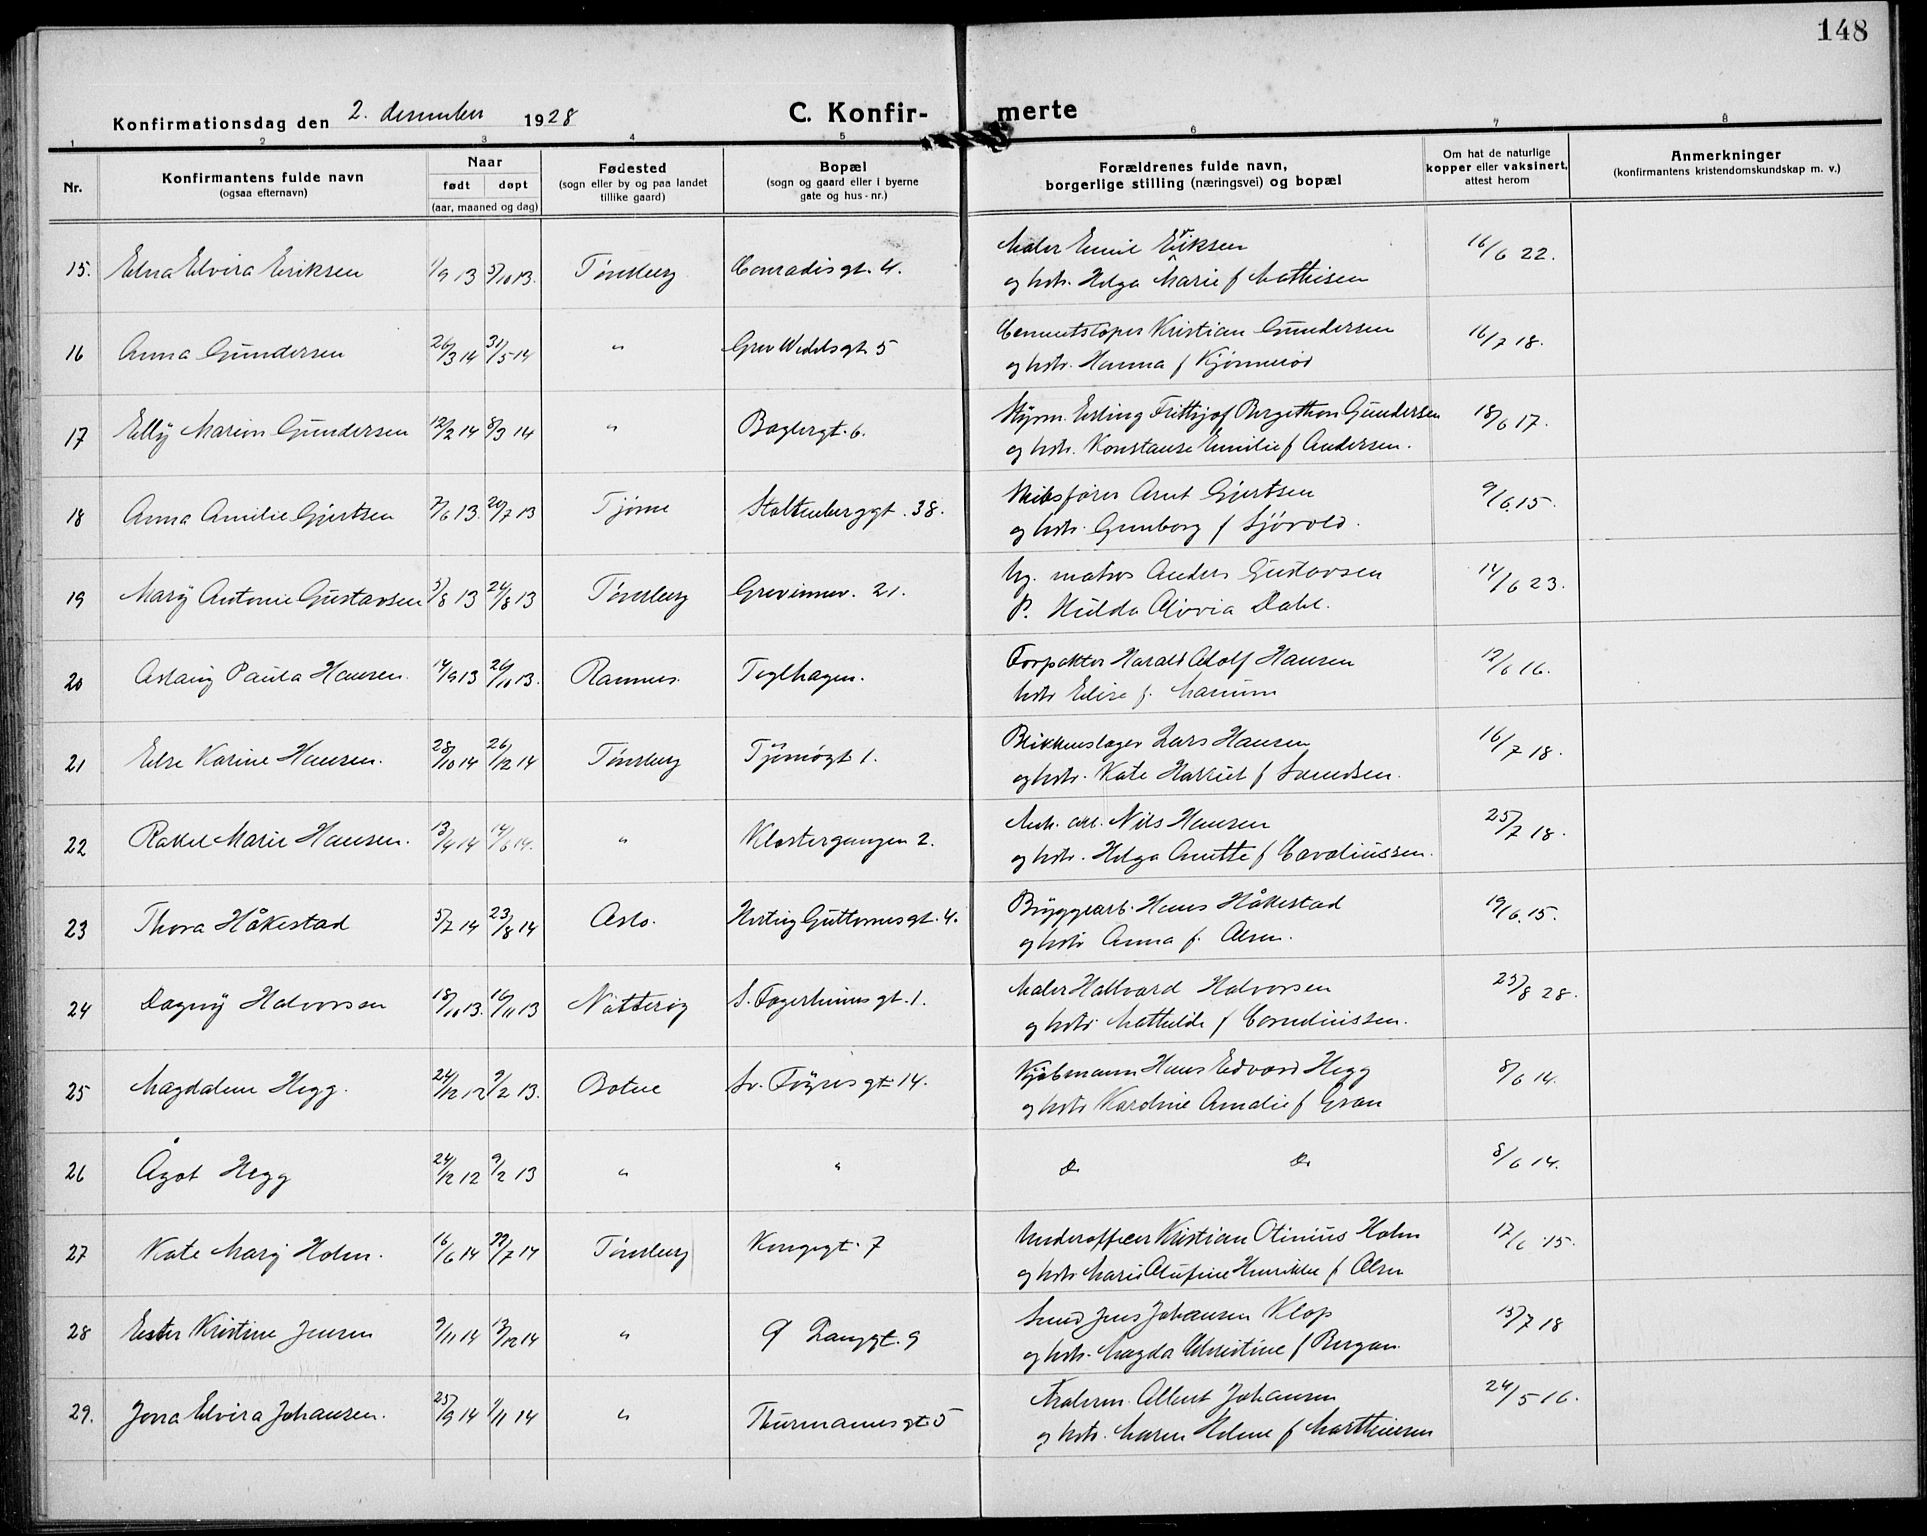 148
Konfirmationsdag den 2. desember 1928
C. Konfir- merte
1 2 3 4 5 6 7 8
Nr.
Konfirmantens fulde navn
(ogsaa efternavn)
Naar
født døpt
(aar, maaned og dag)
Fødested
(sogn eller by og paa landet
tillike gaard)
Bopæl
(sogn og gaard eller i byerne
gate og hus-nr.)
Forældrenes fulde navn,
borgerlige stilling (næringsvei) og bopæl
Om hat de naturlige
kopper eller vaksinert,
attest herom
Anmerkninger
(konfirmantens kristendomskundskap m. v.)
15. Edna Elvira Eriksen 1/9 13 5/10 13. Tønsberg Conradisgt. 4. Maler Emil Eriksen 16/6 22.
og hstr. Helga Marie f Mathisen
16 Anna Gundersen 26/3 14 31/5 14 " Grev Wedelsgt. 5 Cementstøper Kristian Gundersen 16/7 18.
og hstr. Hanna f Kjønnerød
17 Elly Marion Gundersen 12/2 14 8/3 14 " Baglergt. 6. Styrm. Erling Frithjof Bergithon Gundersen 18/6 17.
og hstr. Konstanse Emilie f Andersen.
18 Anna Amilie Gjertsen 7/6 13. 20/7 13 Tjøme Stoltenberggt. 38. Skibsfører Arnt Gjertsen 9/6 15.
og hstr. Gunborg f Sjövold.
19 Mary Antonie Gustavsen 3/8 13 24/8 13 Tønsberg Grevinnev. 21. Ug. matros Anders Gustavsen 14/6 23.
P. Hulda Alovia Dahl.
20 Aslaug Paula Hansen. 14/9 13 26/10 13. Ramnes. Teglhagen. Forpakter Harald Adolf Hansen 12/6 16.
hstr Elise f.
21 Else Karine Hansen. 28/10 14 26/12 14 Tønsberg Tjömögt 1. Blikkenslager Lars Hansen 16/7 18.
og hstr. Kate Harriet f
22 Rakel Marie Hansen. 13/4 14 14/6 14. " Klostergangen 2. Nils Hansen 25/7 18.
og hstr. Helga Anette f
23 Thora Håkestad 5/7 14 23/8 14 Oslo. Hertug Guttormsgt. 4. Bryggearb. Hans Håkestad 19/6 15.
og hstr Anna f. Olsen.
24 Dagny Halvorsen 18/10 13. 16/11 13 Nötteröy S. Fagerheimsgt. 1. Maler Hallvard Halvorsen 23/8 28.
og hstr Mathilde f Corneliussen.
25 Magdalene Hegg. 24/12 12 9/2 13. Botne Sv. Föynsgt 14. Kjøbmann Hans Edvard Hegg 8/6 14.
og hstr Karoline Amalie f Gran
26 Ågot Hegg 24/12 12 9/2 13 " " Do Do 8/6 14.
27 Kate Mary Holm. 16/6 14 22/7 14 Tønsberg Kongegt. 7 Underofficer Kristian Otinius Holm 17/6 15.
og hstr Maria Olufine Henrikke f Olsen
28 Ester Kristine Jensen 9/11 14 13/12 14 " Ø Langgt. 9 Smed Jens Johansen Klop 13/7 18
og hstr. Magda Christine f Bergan.
29. Jona Elvira Johansen. 25/9 14 1/11 14 " Thurmannsgt 5 Albert Johansen 24/5 16.
og hstr. Maren Helene f Marthinsen